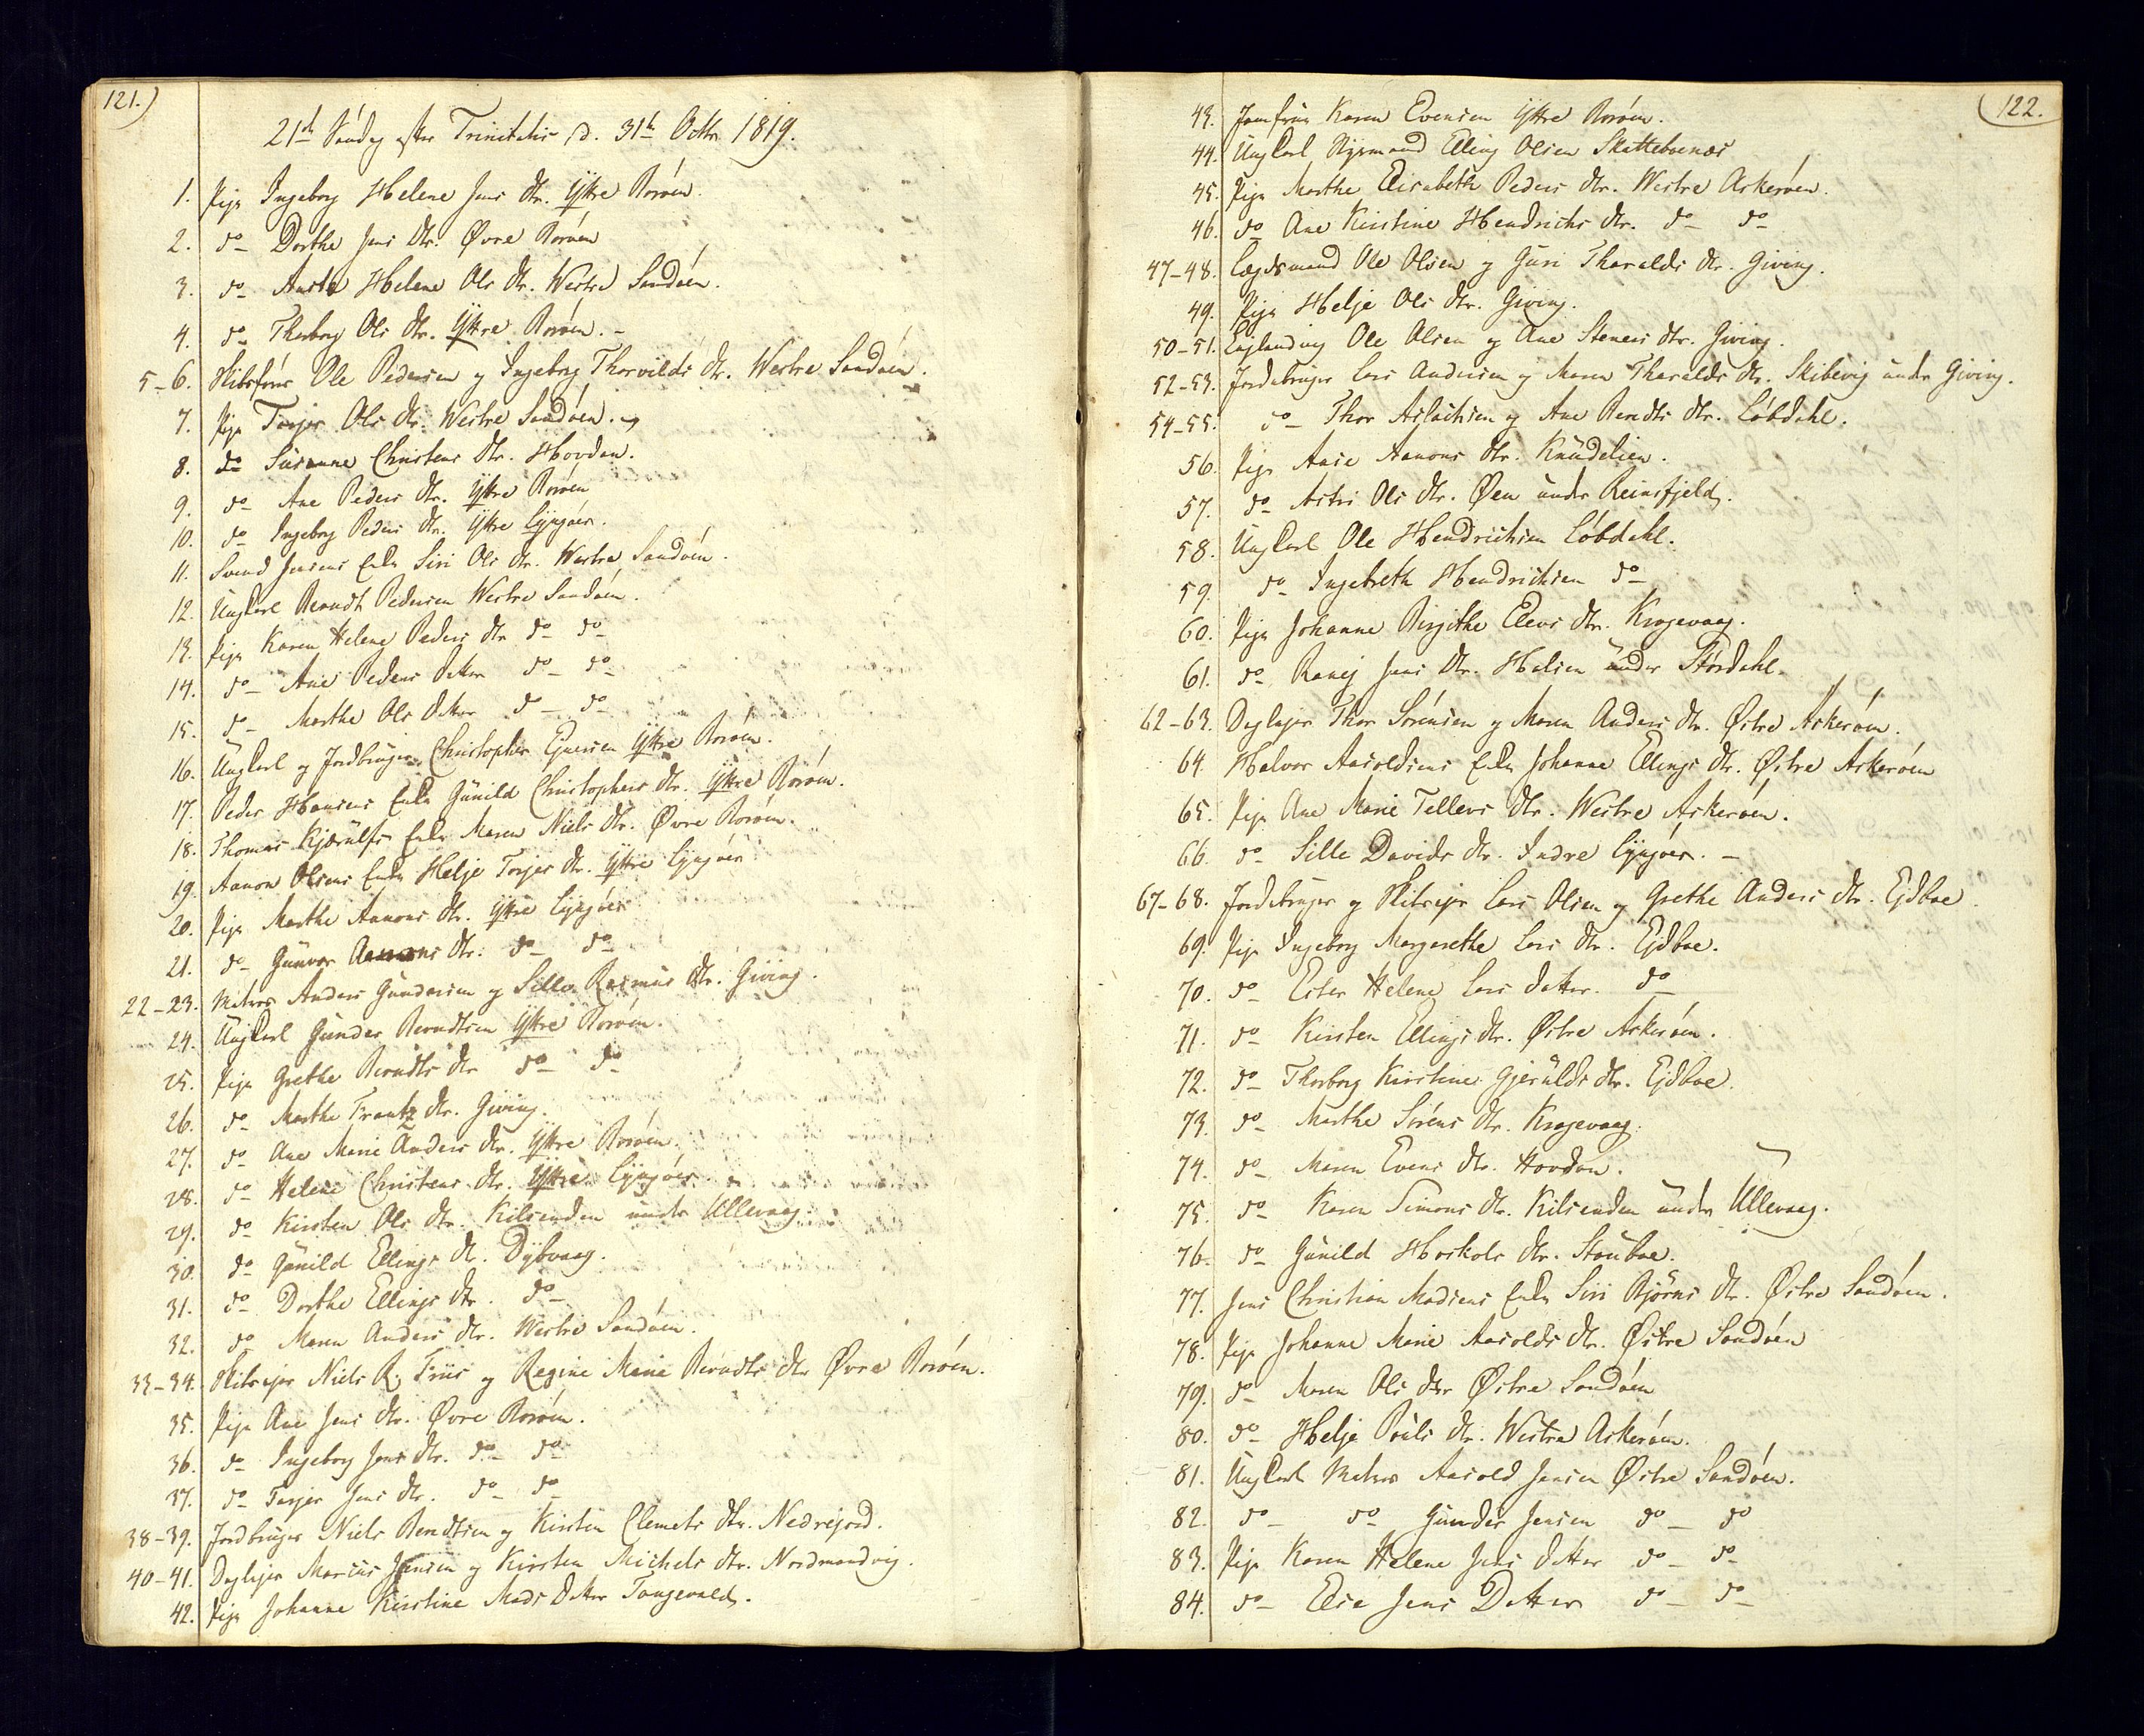 121.)
21de Søndag efter Trinitatis d. 31te Octbr. 1819.
1. Pige Ingeborg Helene Jens dtr. Yttre Borøen.
2. do Dorthe Jens dtr. Øvre Borøen
3. do Helene Ols dtr. Westre Sandøen.
4. do Thorborg Ols dtr. Yttre Borøen. -
5-6. Ole Pedersen og Ingeborg Thorvilds dtr. Westre Sandøen.
7. Pige Torjer Ols dtr. Westre Sandøen.
8. do Susanne Christens dtr. Hovdan.
9. do Ane Peders dtr. Yttre Borøen
10. do Ingeborg Peders dtr. Yttre Lyngøer.
11. Svend Jensens Enke Siri Ols dtr. Westre Sandøen.
12. Ungkarl Berndt Pedersen Westre Sandøen.
13. Pige Karen Helene Peders dtr do do
14. do Ane Peders datter do do
15. do Marthe Ols datter do do
16. Ungkarl og Jordbruger Christopher Ejversen Yttre Borøen.
17. Peder Hansens Enke Gunild Christophers dtr. Yttre Borøen.
18. Thomas Kjærulfs Enke Maren Niels dtr. Øvre Borøen.
19. Aanon Olsens Enke Helje Torjes dtr. Yttre Lyngøer
20. Pige Marthe Aanons dtr. Yttre Lyngøer
21. do Gunvor Aanons dtr. do do
22-23. Matros Anders Gundersen og Sille Rasmus dtr. Giving.
24. Ungkarl Gunder Berndtsen Yttre Borøen.
25. Pige Grethe Berndts dtr do do
26. do Marthe Frantz dtr. Giving.
27. do Ane Marie Anders dtr. Yttre Borøen.
28. do Helene Christens dtr. Yttre Lyngøer
29. do Kirsten Ols dtr. Kilsenden under Ullevaag.
30. do Gunild Ellings dtr. Dybvaag.
31. do Dorthe Ellings dtr. do
32. do Maren Anders dtr. Westre Sandøen.
33-34. Niels R. Friis og Regine Marie Berndts dtr Øvre Borøen.
35. Pige Ane Jens dtr. Øvre Borøen.
36. do Ingeborg Jens dtr. do do
37. do Torjer Jens dtr. do do
38-39. Jordbruger Niels Berndtsen og Kirsten Clemets dtr. Nedrejord.
40-41. Daglejer Marcus Jensen og Kirsten Michels dtr. Nordmandvig.
42. Pige Johanne Kirstine Mads datter Tangevald.
122.
43. Jomfrue Karen Evensen Yttre Borøen.
44. Ungkarl Styrmand Elling Olsen Skatteboenæs
45. Pige Marthe Elisabeth Peders dtr. Westre Askerøen.
46. do Ane Kirstine Hendrichs dtr. do do
47-48. Lægdsmand Ole Olsen og Guri Tharalds dtr. Giving.
49. Pige Helje Ols dtr. Giving.
50-51. Ole Olsen og Ane Steners dtr. Giving.
52-53. Jordebruger Lars Andersen og Maren Tharalds dtr. Skibevig under Giving.
54-55. do Thor Aslachsen og Ane Berndts dtr. Løbdahl.
56. Pige Anne Aanons dtr. Knudelien.
57. do Astri Ols dtr. Øen under Reinsfjeld.
58. Ungkarl Ole Hendrichsen Løbdahl.
59. do Ingebreth Hendrichsen do
60. Pige Johanne Birgithe Elevs dtr. Kragevaag.
61. do Ranej Jens dtr. Halsen under Størdahl.
62-63. Daglejer Thor Sørensen og Maren Anders dtr. Østre Askerøen.
64. Halvor Aasoldsens Enke Johanne Ellings dtr. Østre Askerøen
65. Pige Ane Marie Tellevs dtr. Westre Askerøen.
66. do Sille Davids dtr. Indre Lyngøer. -
67-68. Jordebruger og Lars Olsen og Grethe Anders dtr. Ejdboe.
69. Pige Ingeborg Margarethe Lars dtr. Ejdboe.
70. do Ester Helene Lars datter. do
71. do Kirsten Ellings dtr. Østre Askerøen.
72. do Thorborg Kirstine Gjerulds dtr. Ejdboe.
73. do Marthe Sørens dtr. Kragevaag.
74. do Maren Evens dtr. Hovdan.
75. do Karen Simons dtr. Kilsenden under Ullevaag.
76. do Gunild Hoskols dtr. Stouboe.
77. Jens Christian Madsens Enke Siri Bjørns dtr. Østre Sandøen.
78. Pige Johanne Marie Aasolds dtr. Østre Sandøen
79. do Maren Ols dtr Østre Sandøen
80. do Helje Pouls dtr. Westre Askerøen.
81. Ungkarl Matros Aasold Jensen Østre Sandøen.
82. do do Gunder Jensen do do
83. Pige Karen Helene Jens datter do do
84. do Else Jens Datter do do